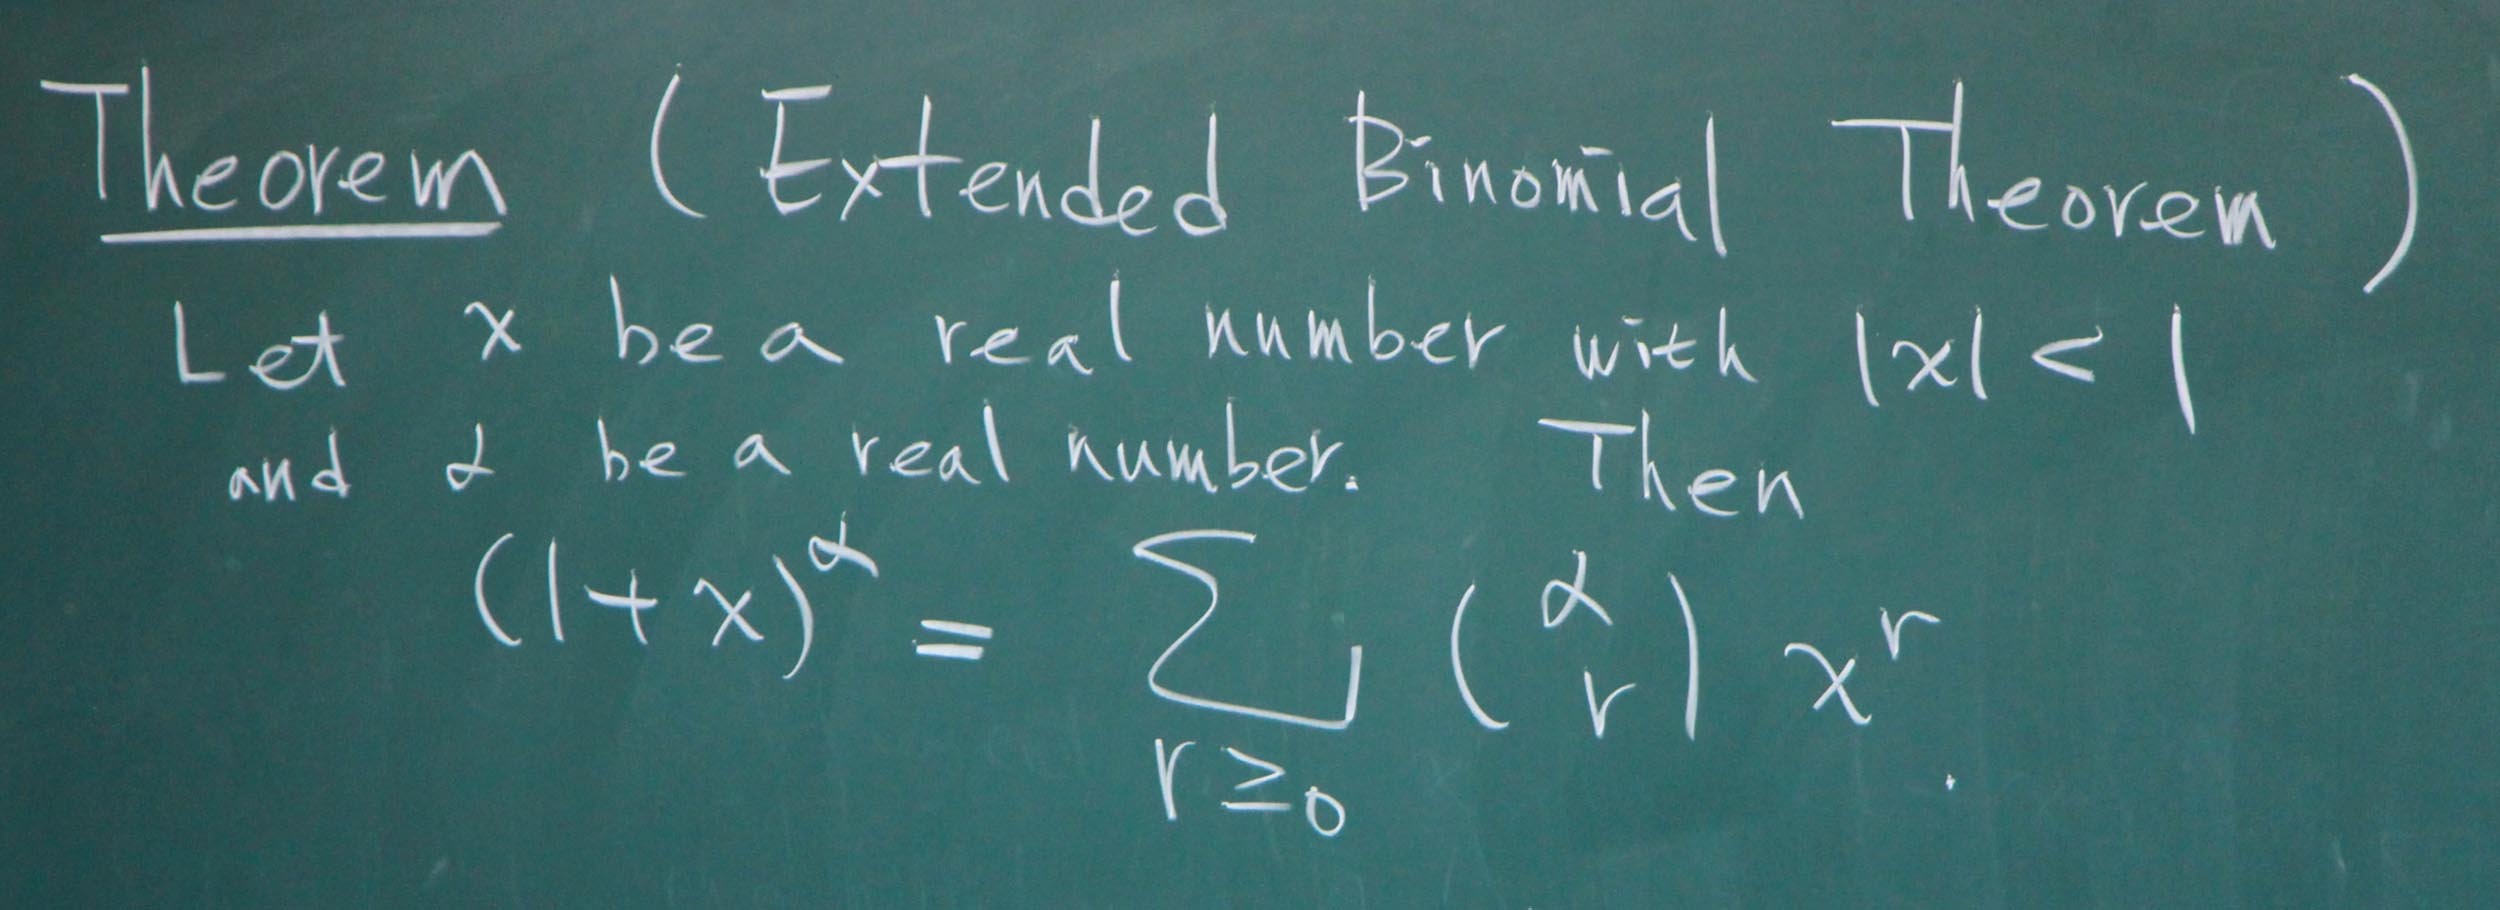 Theorem (Extended Binomial Theorem)
Let x be a real number with |x| < 1
and α be a real number. Then
(1+x)^α = ∑_{r≥0} (α r) x^r.